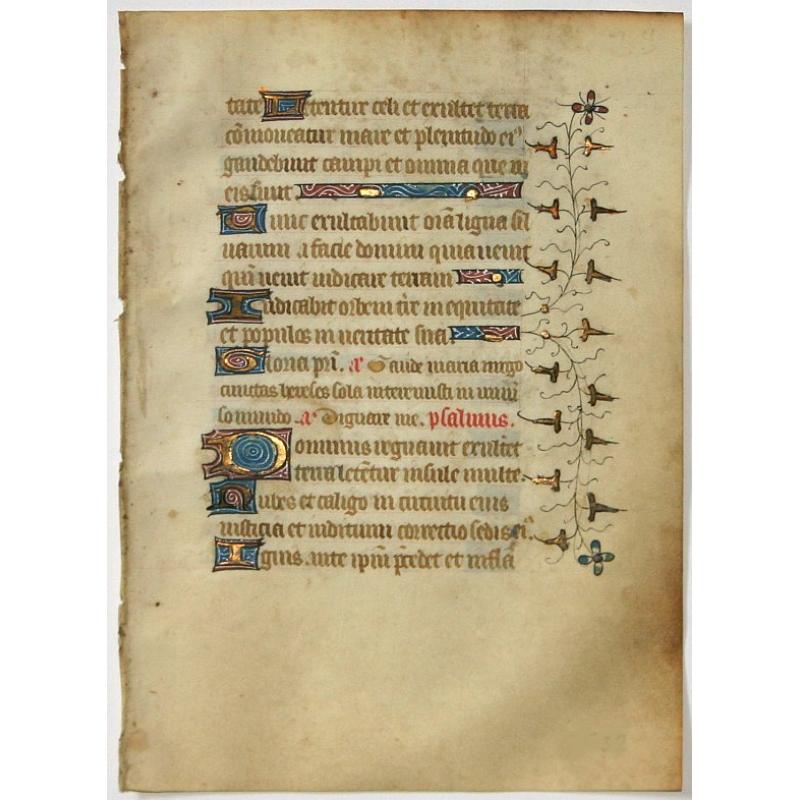 tate Letentur celi et exultet terra
cōmoueatur mare et plenitudo ei⁹
gaudebunt campi et omnia que in
eis sunt
Tunc exultabunt oīa ligna sil
uarum a facie domini quia uenit
qm̄ uenit iudicare terram
Iudicabit orbem tr̄e in equitate
et populos in ueritate sua.
Gloria pr̄i. a Gaude maria uirgo
cunctas hereses sola interemisti in uniu̅
so mundo. a Dignare me. psalmus.
Dominus regnauit exultet
terra letēt̄ur insule multe.
Nubes et caligo in circuitu eius
iusticia et iudicium correctio sedis ei⁹.
Ignis ante ip̄m p̄cedet et infla